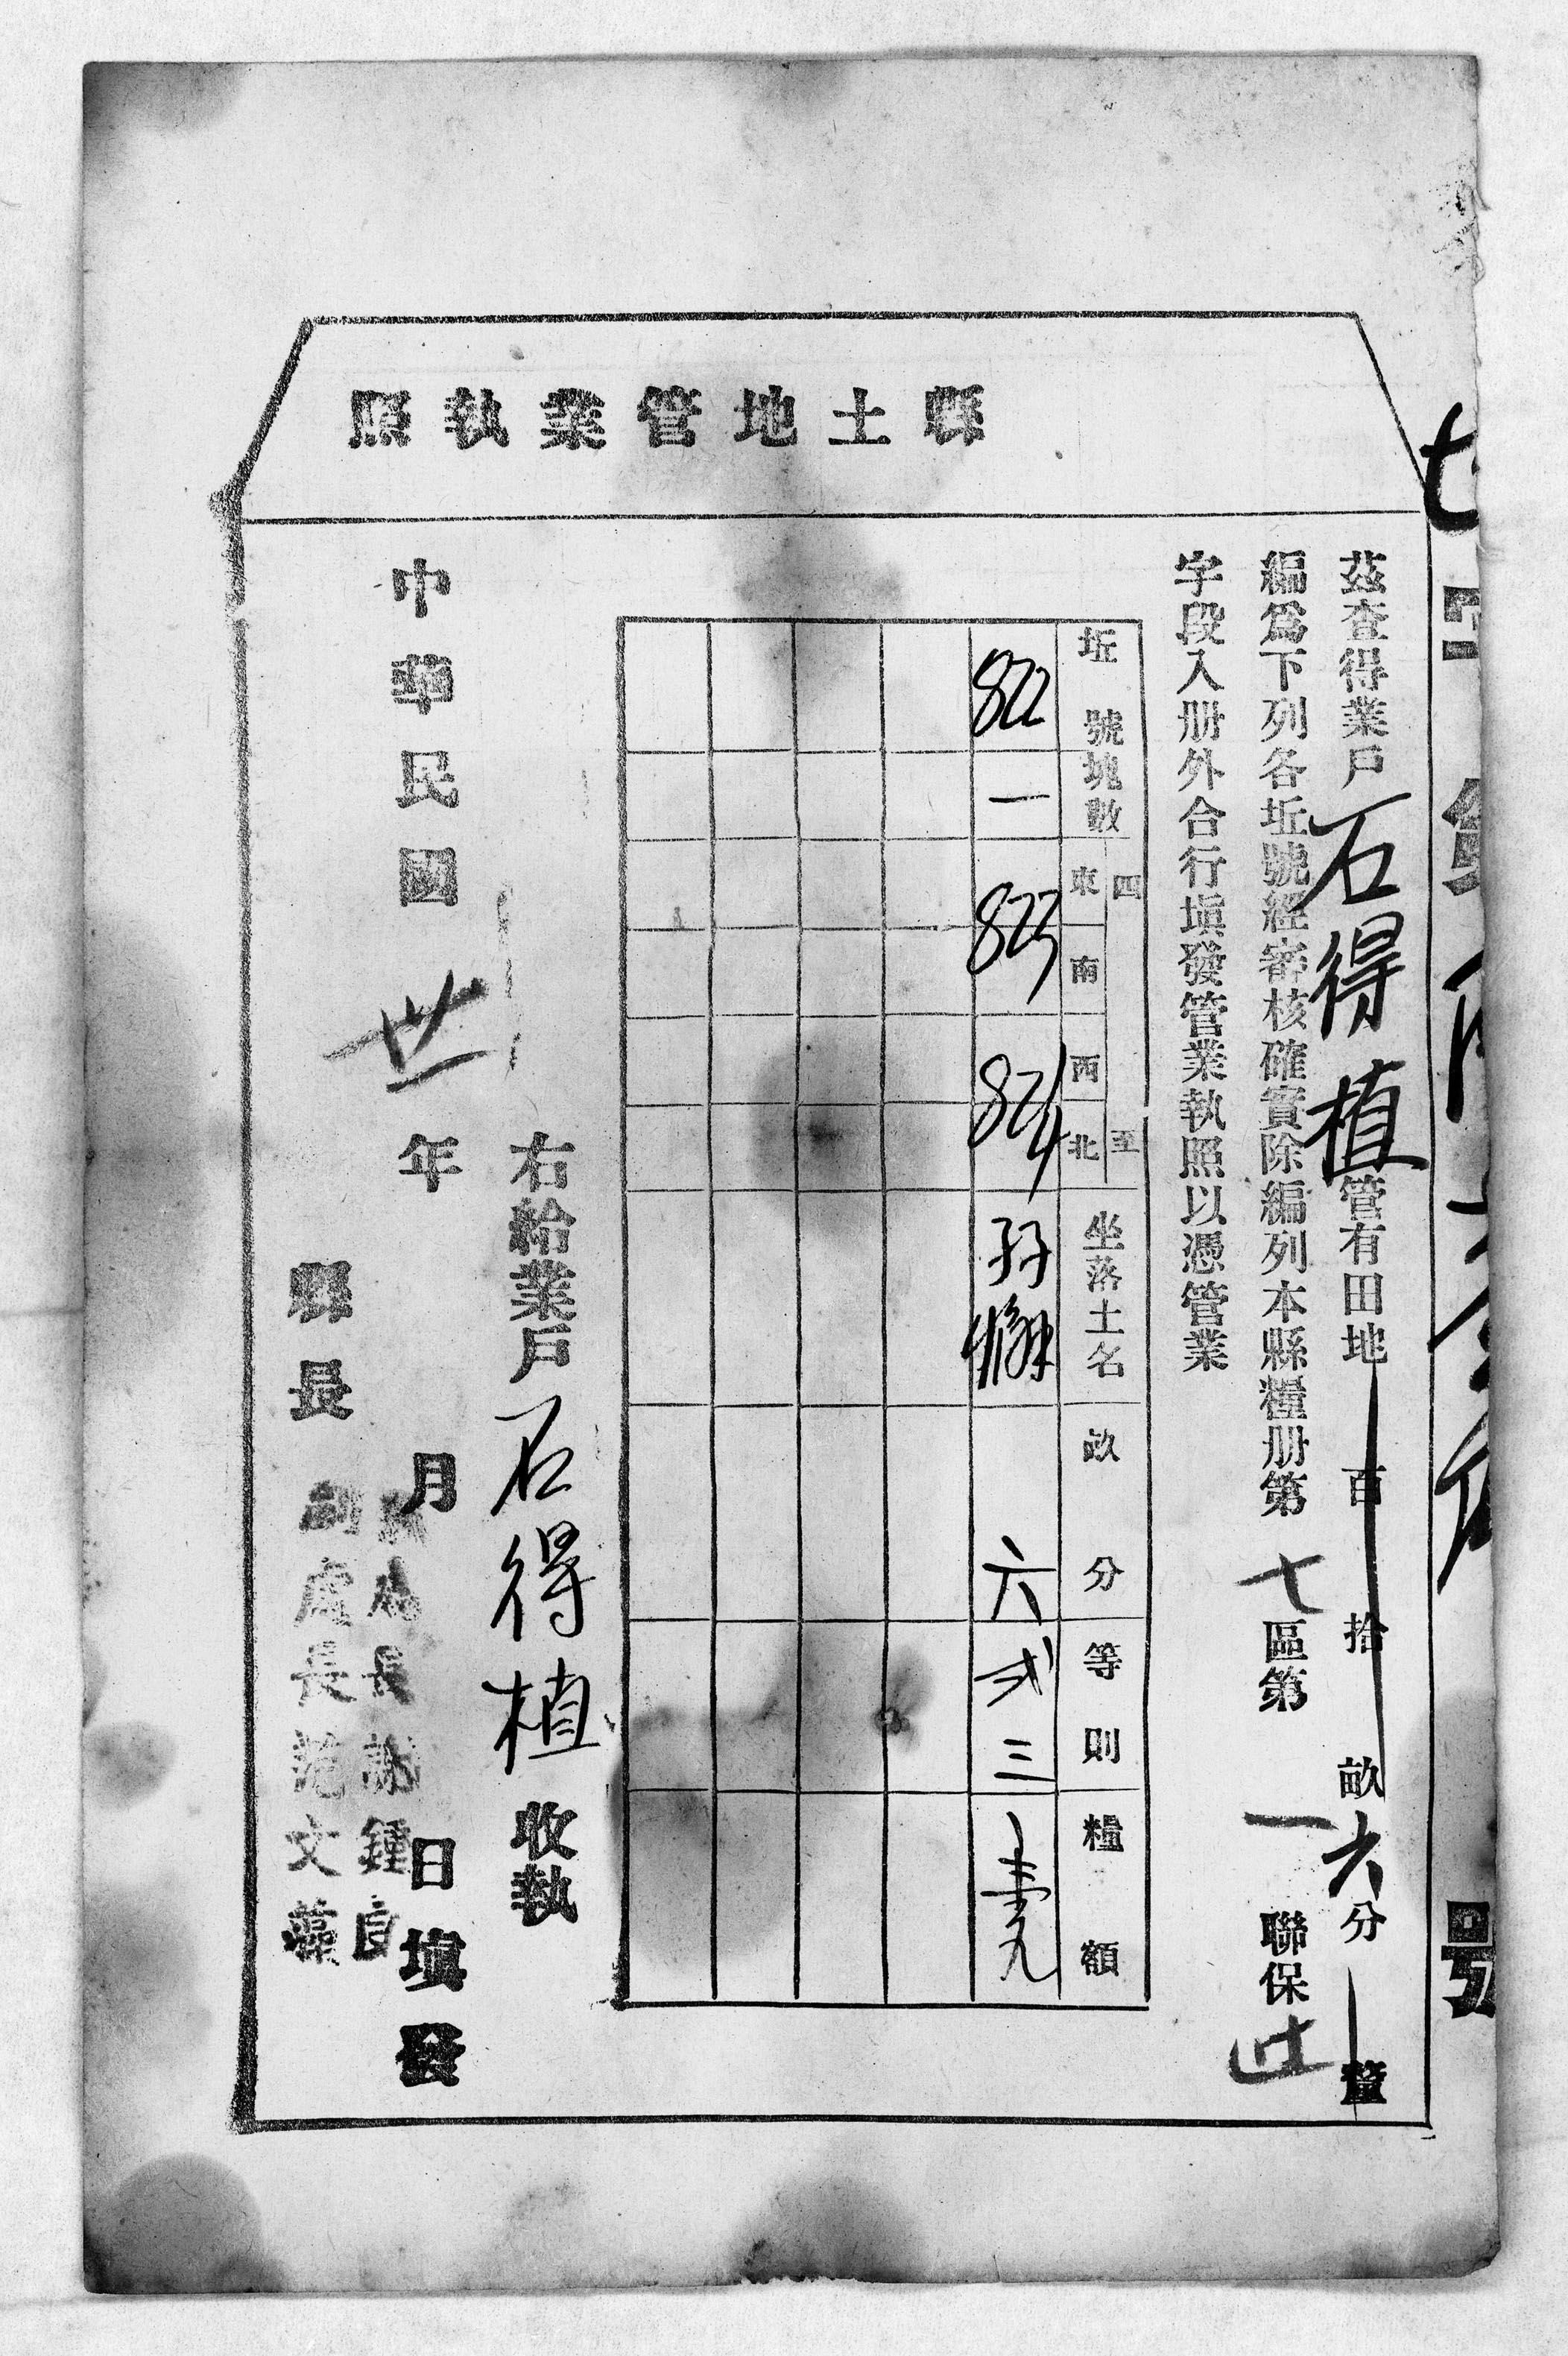 縣土地管業執照
七字第
號
茲查得業戶石得植管有田地百拾畝六分釐
編爲下列各坵號經審核確實除編列本縣糧册第七區第一聯保
字段入册外合行塡發管業執照以憑管業
坵號 塊數 四至 東 南 西 北 坐落土名 畝分 等則 糧額
822 一 823 824 六 弍 三 壹九
右給業戶石得植收執
中華民國卅年月日塡發
縣長
處長謝鍾良
副處長范文藻